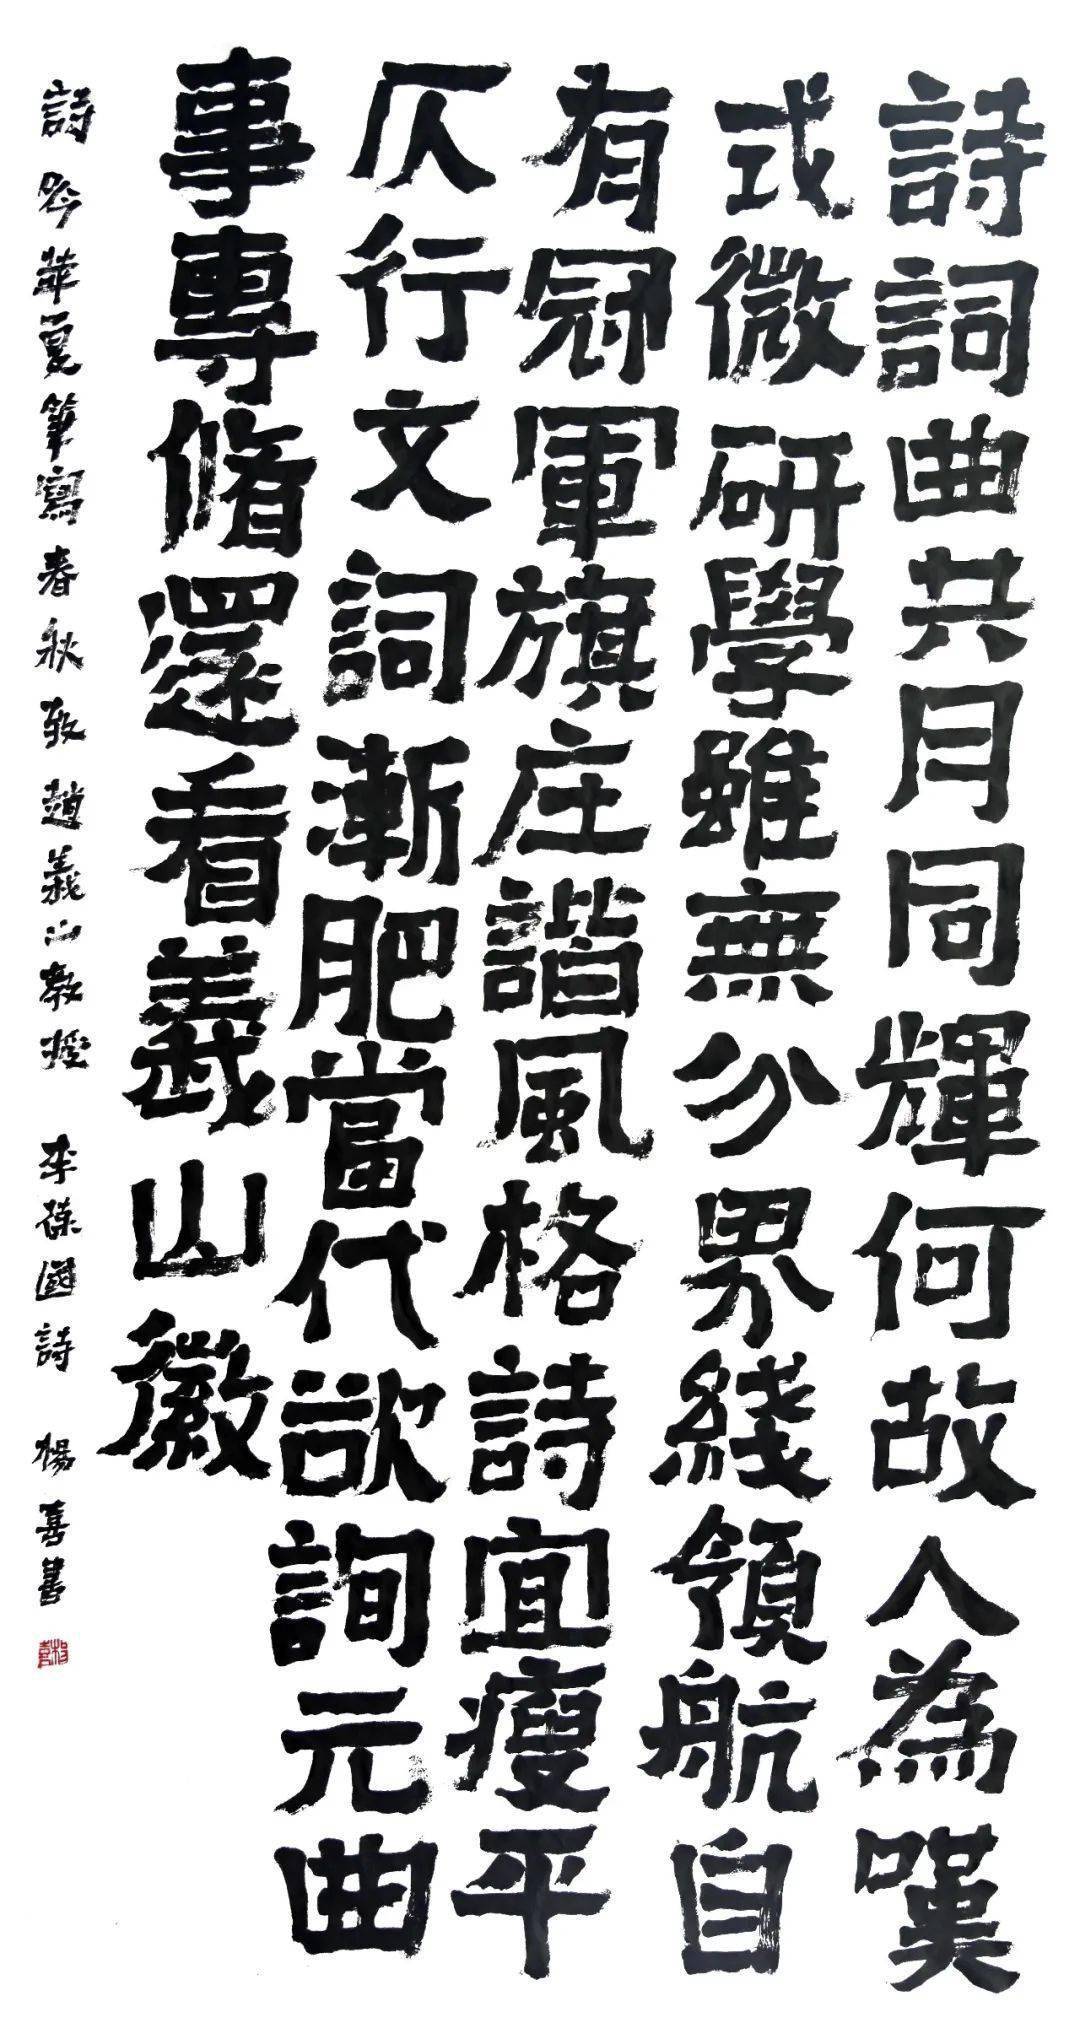 詩詞曲共月同輝何故人為嘆
式微研學雖無分界綫領航自
有冠軍旗庄諧風格詩宜瘦平
仄行文詞漸肥當代欲詢元曲
事專脩還看義山徽
詩吟華夏筆寫春秋致趙義山教授 李葆國詩 楊喜書